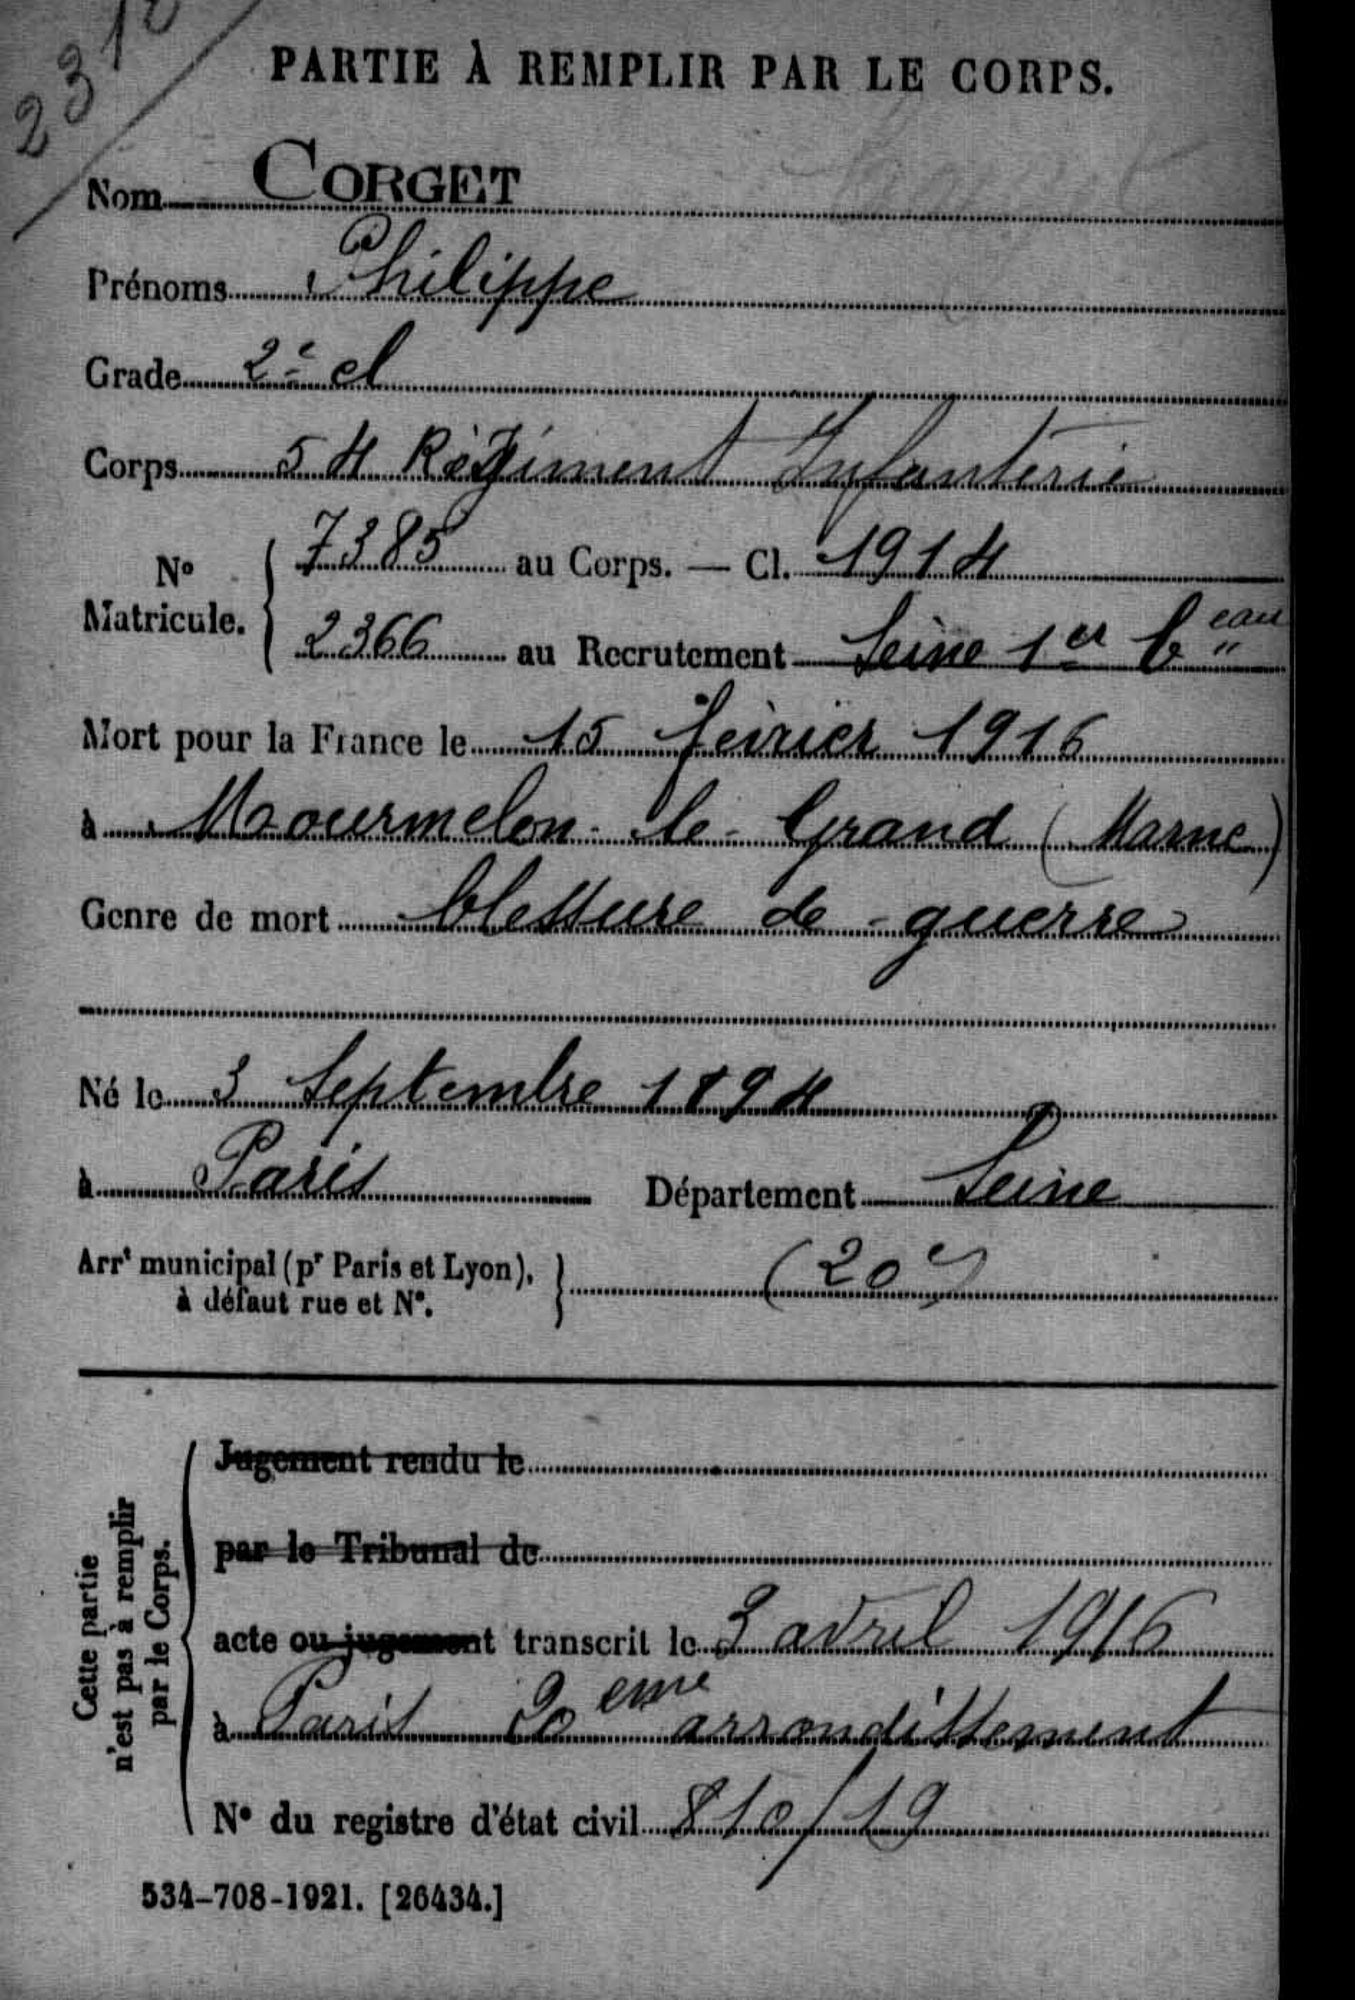 PARTIE À REMPLIR PAR LE CORPS.
Nom CORGET
Prénoms Philippe
Grade 2e cl
Corps 54 Régiment Infanterie
No Matricule. 7385 au Corps. — Cl. 1914
2366 au Recrutement Seine 1er beau
Mort pour la France le 15 février 1916
à Mourmelon-le-Grand (Marne)
Genre de mort blessure de guerre
Né le 3 Septembre 1894
à Paris Département Seine
Arrt municipal (pr Paris et Lyon), (20e)
à défaut rue et No.
Cette partie n'est pas à remplir par le Corps.
Jugement rendu le
par le Tribunal de
acte ou jugement transcrit le 3 avril 1916
à Paris 20eme arrondissement
No du registre d'état civil 810/19
534-708-1921. [26434.]